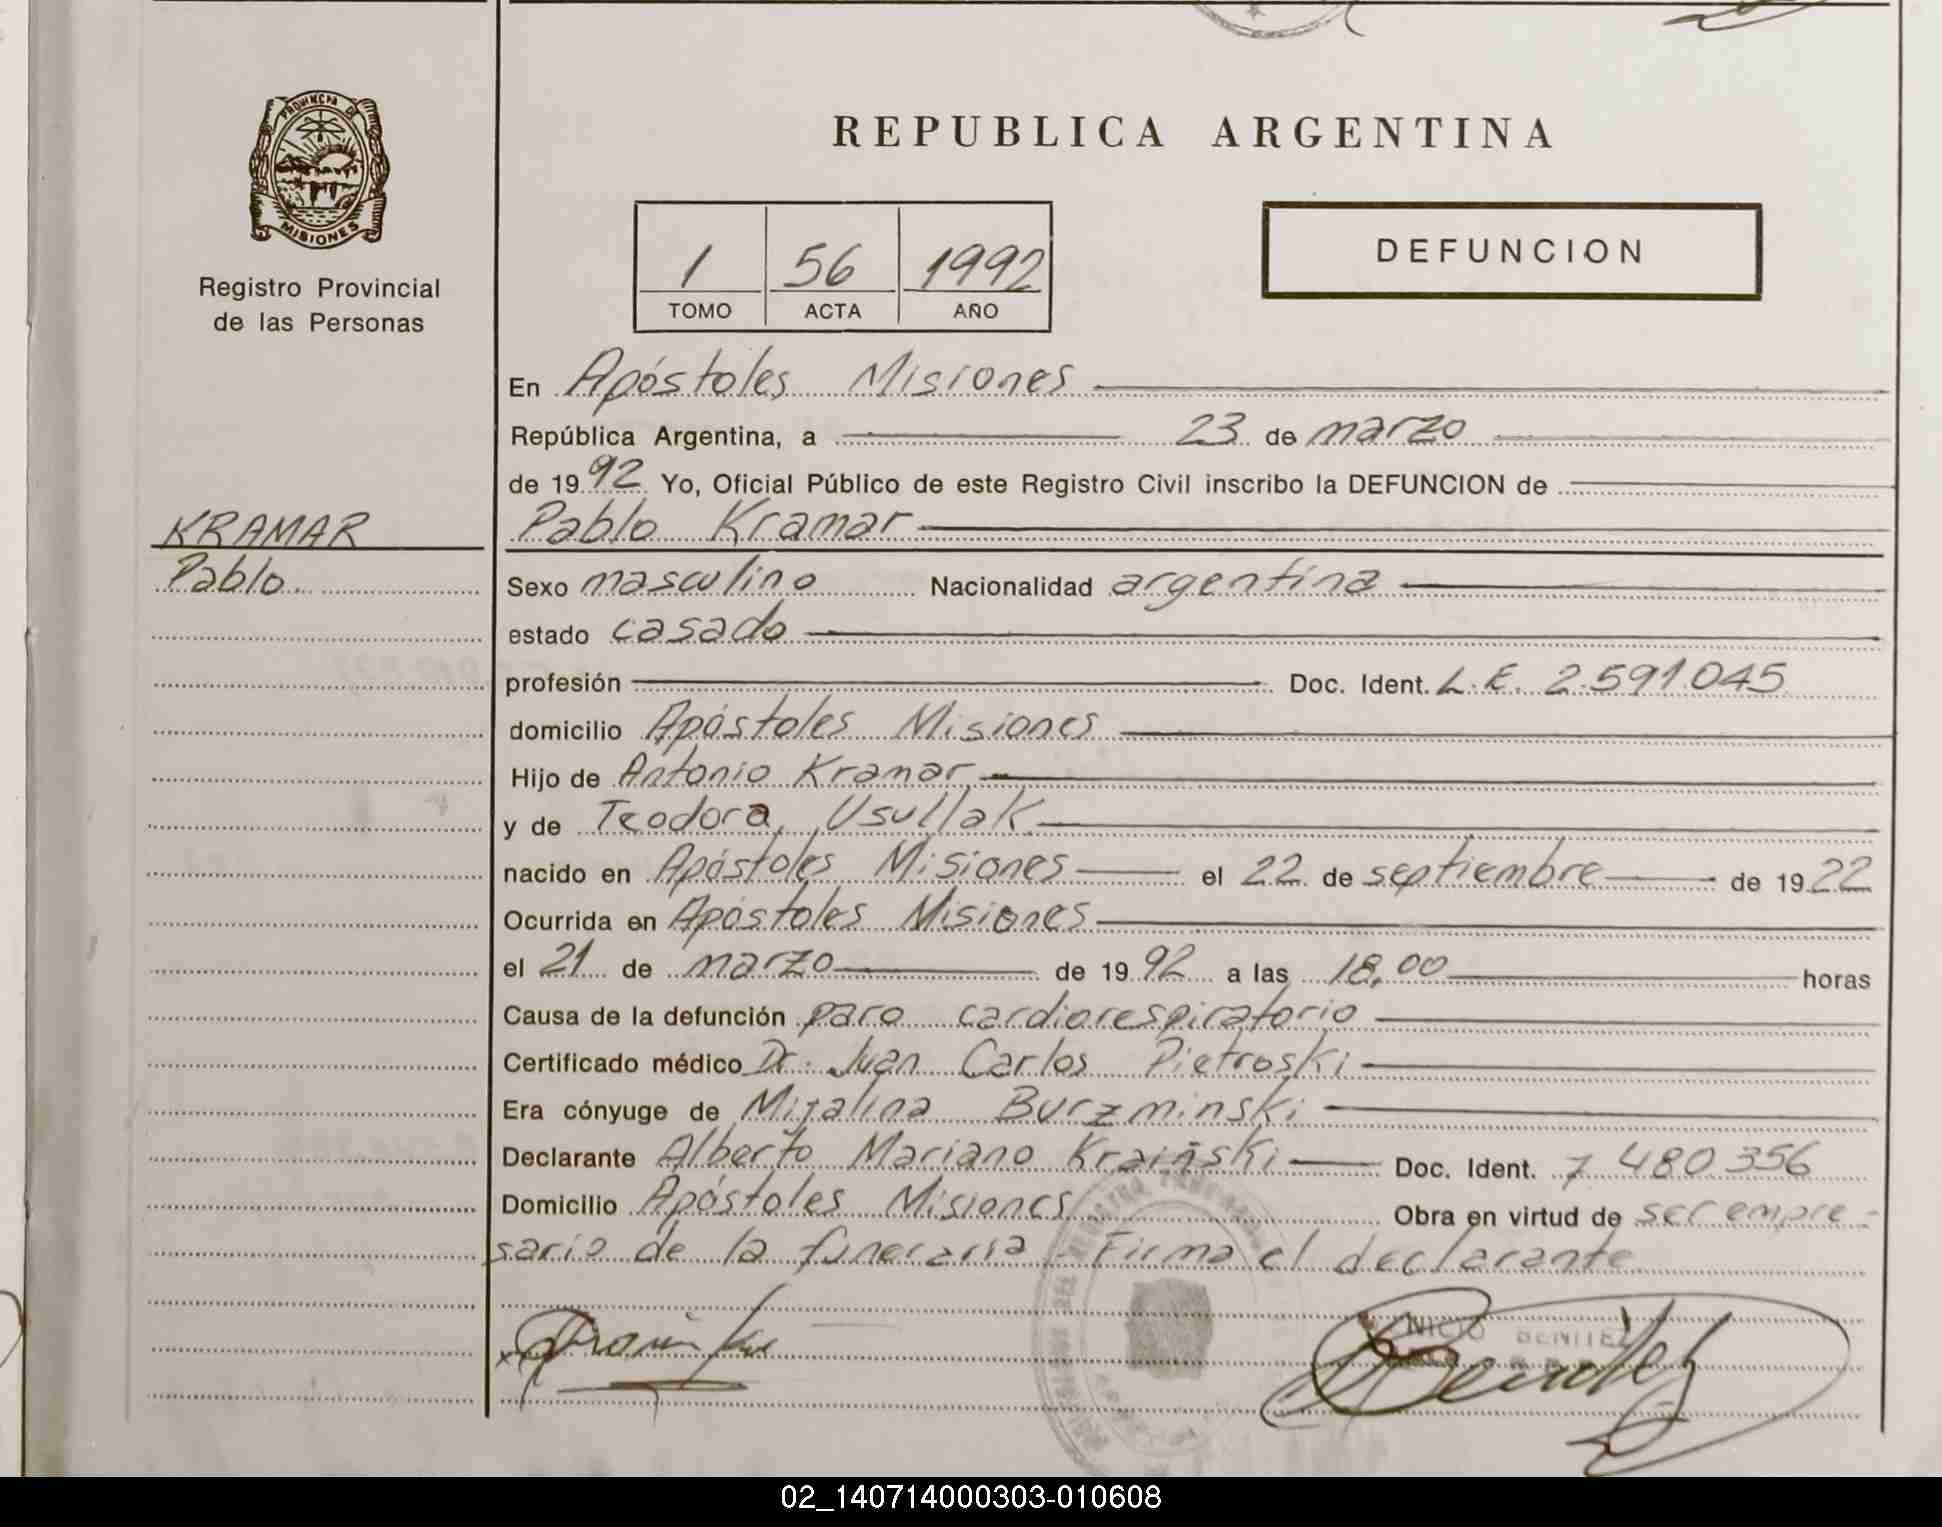 PROVINCIA DE
MISIONES
Registro Provincial
de las Personas
KRAMAR
Pablo
REPUBLICA ARGENTINA
1 56 1992
TOMO ACTA AÑO
DEFUNCION
En Apóstoles Misiones
República Argentina, a 23 de marzo
de 1992 Yo, Oficial Público de este Registro Civil inscribo la DEFUNCION de
Pablo Kramar
Sexo masculino Nacionalidad argentina
estado casado
profesión Doc. Ident. L.E. 2.591.045
domicilio Apóstoles Misiones
Hijo de Antonio Kramar
y de Teodora Usullak
nacido en Apóstoles Misiones el 22 de septiembre de 1922
Ocurrida en Apóstoles Misiones
el 21 de marzo de 1992 a las 18,00 horas
Causa de la defunción paro cardiorespiratorio
Certificado médico Dr. Juan Carlos Pietroski
Era cónyuge de Miralina Burzminski
Declarante Alberto Mariano Kraiñski Doc. Ident. 7.480.356
Domicilio Apóstoles Misiones Obra en virtud de ser empre-
sario de la funeraria - Firma el declarante
BENITEZ
02_140714000303-010608